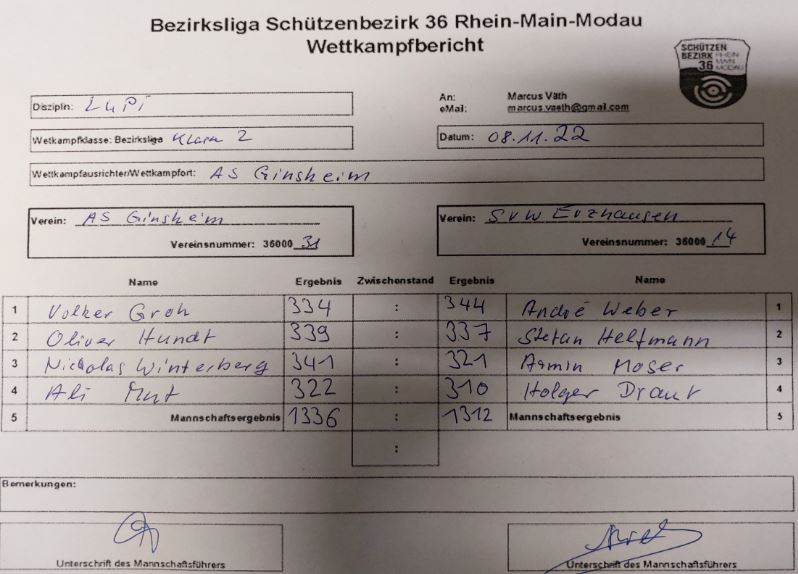 Bezirksliga Schützenbezirk 36 Rhein-Main-Modau
Wettkampfbericht
SCHÜTZEN
BEZIRK RHEIN
36 MAIN
MODAU
Disziplin: LuPi
An: Marcus Väth
eMail: marcus.vaeth@gmail.com
Wetkampfklasse: Bezirksliga Klasse 2
Datum: 08.11.22
Wettkampfausrichter/Wettkampfort: AS Ginsheim
Verein: AS Ginsheim
Vereinsnummer: 36000 31
Verein: SVW Erzhausen
Vereinsnummer: 36000 14
Name Ergebnis Zwischenstand Ergebnis Name
1 Volker Groh 334 : 344 André Weber 1
2 Oliver Hundt 339 : 337 Stefan Helfmann 2
3 Nickolas Winterberg 341 : 321 Armin Moser 3
4 Ali 322 : 310 Holger Draut 4
5 Mannschaftsergebnis 1336 : 1312 Mannschaftsergebnis 5
:
Bemerkungen:
Unterschrift des Mannschaftsführers
Unterschrift des Mannschaftsführers